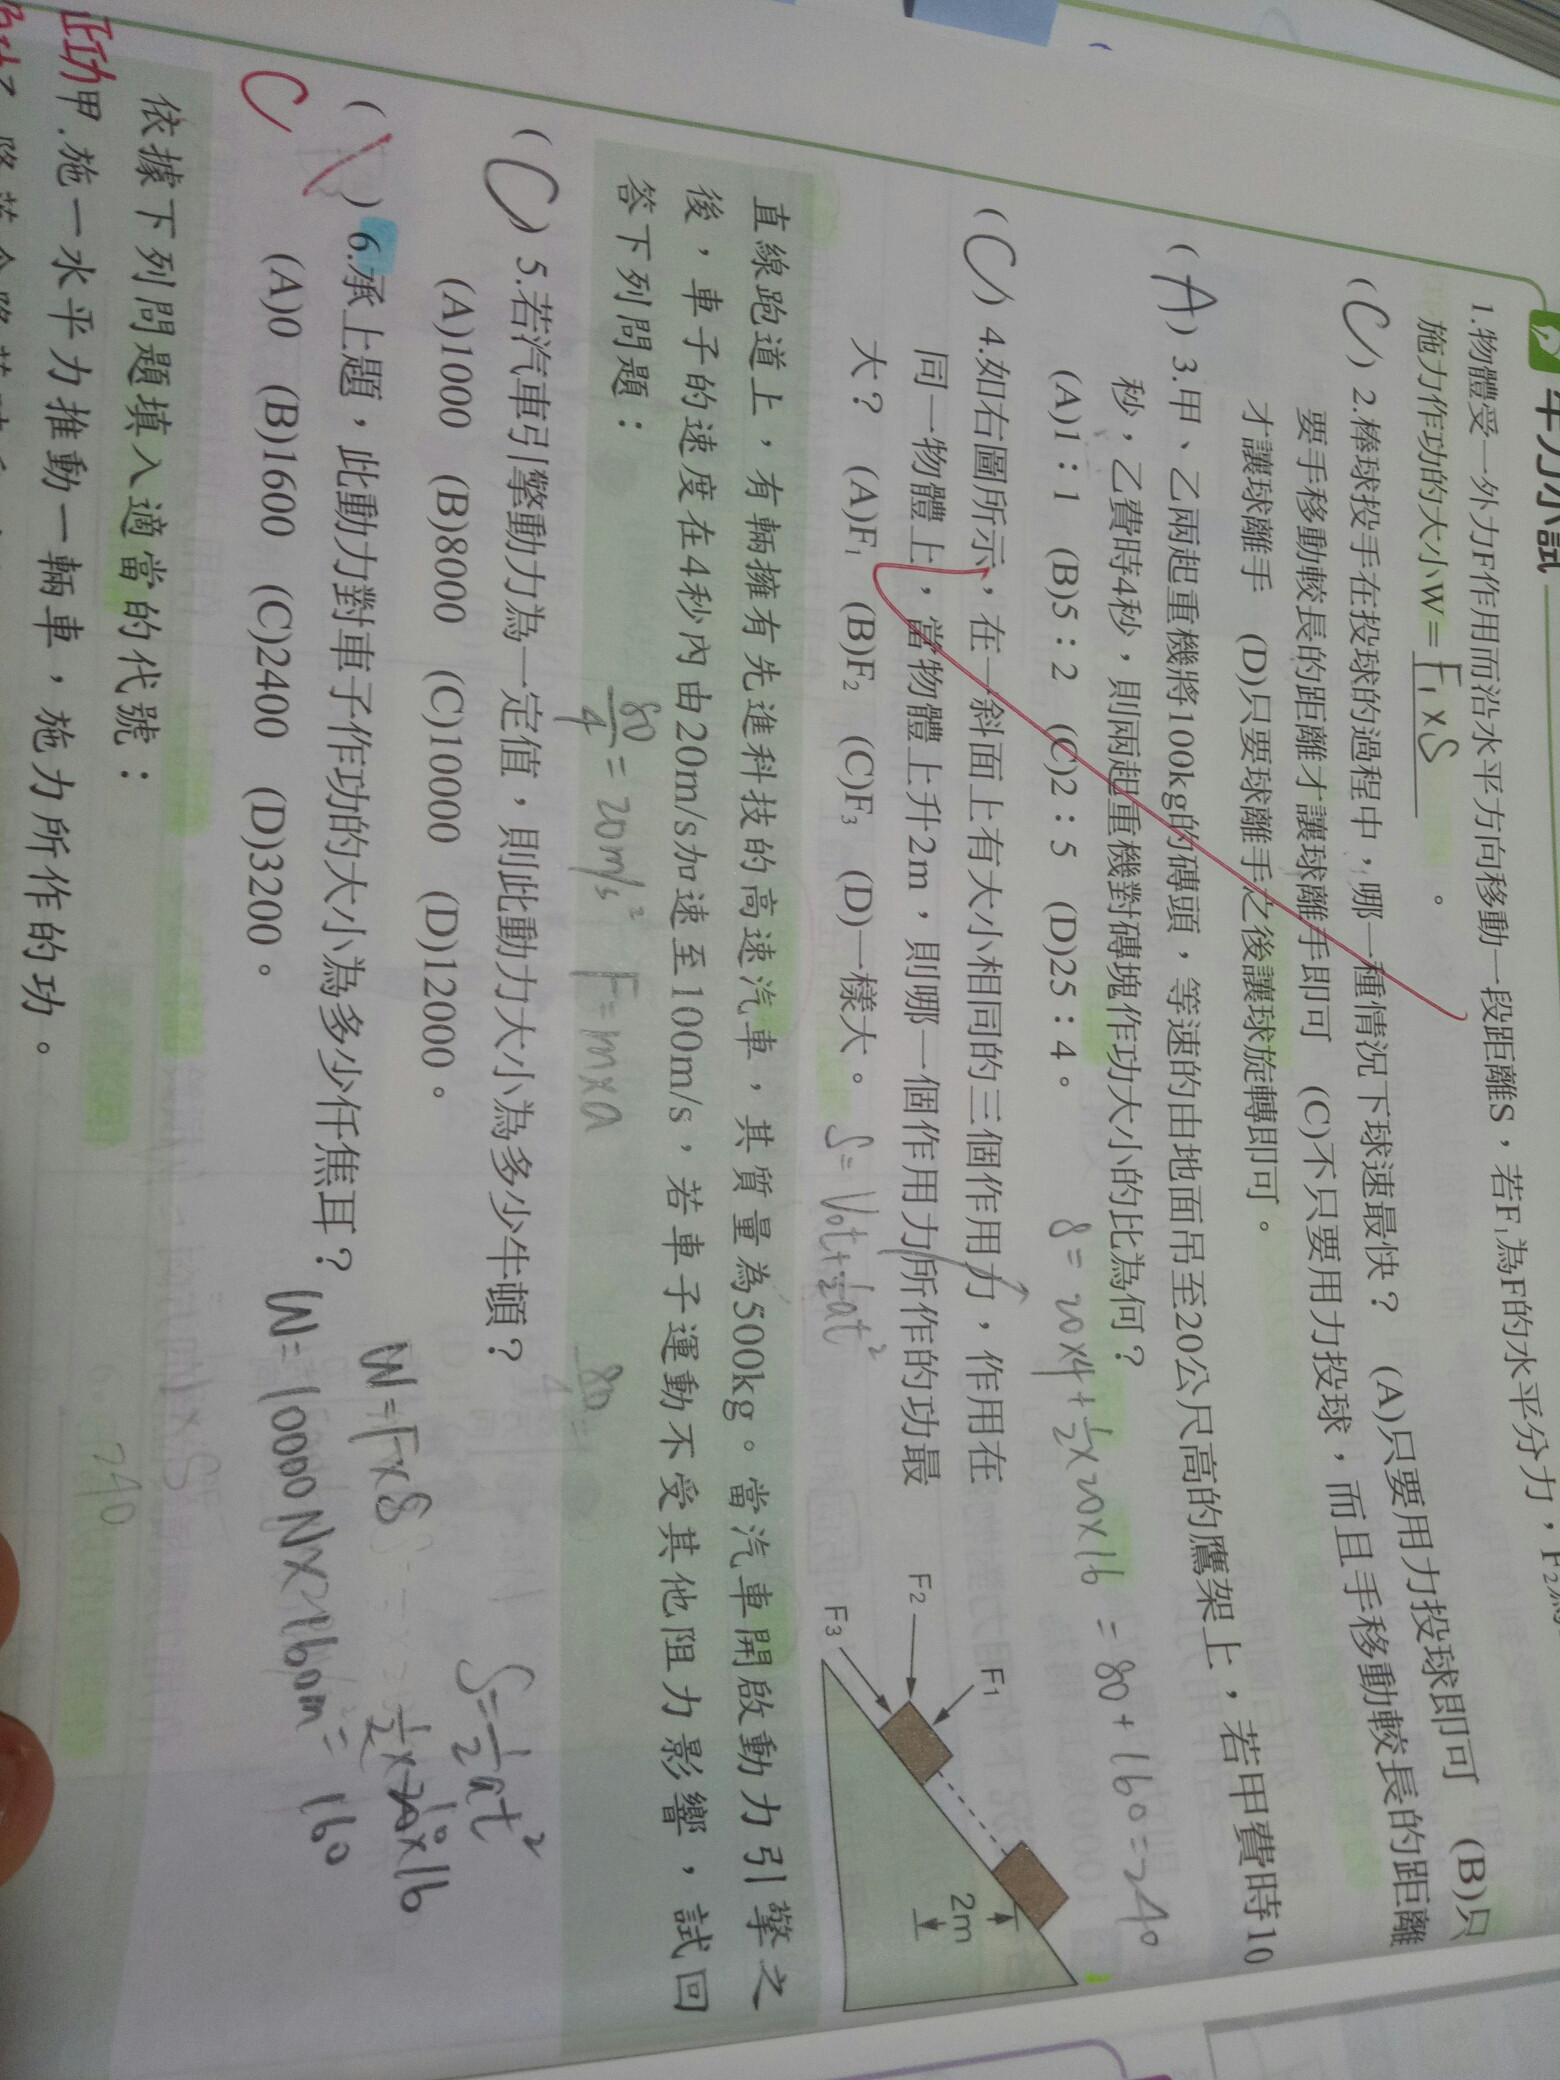 牛刀小試
1.物體受一外力F作用而沿水平方向移動一段距離S，若F₁為F的水平分力，F₂為
施力作功的大小W＝F₁×S。
(C) 2.棒球投手在投球的過程中，哪一種情況下球速最快？ (A)只要用力投球即可 (B)只
要手移動較長的距離才讓球離手即可 (C)不只要用力投球，而且手移動較長的距離
才讓球離手 (D)只要球離手之後讓球旋轉即可。
(A) 3.甲、乙兩起重機將100kg的磚頭，等速的由地面吊至20公尺高的鷹架上，若甲費時10
秒，乙費時4秒，則兩起重機對磚塊作功大小的比為何？
(A)1：1 (B)5：2 (C)2：5 (D)25：4。
8=20×4+½×20×16 =80+160=240
(C) 4.如右圖所示，在一斜面上有大小相同的三個作用力，作用在
同一物體上，當物體上升2m，則哪一個作用力所作的功最
大？ (A)F₁ (B)F₂ (C)F₃ (D)一樣大。
S=V₀t+½at²
F₁
F₂
F₃
2m
直線跑道上，有輛擁有先進科技的高速汽車，其質量為500kg。當汽車開啟動力引擎之
後，車子的速度在4秒內由20m/s加速至100m/s，若車子運動不受其他阻力影響，試回
答下列問題：
80/4=20m/s² F=m×a
80
(C) 5.若汽車引擎動力為一定值，則此動力大小為多少牛頓？
(A)1000 (B)8000 (C)10000 (D)12000。
S=½at²
( ) 6.承上題，此動力對車子作功的大小為多少仟焦耳？
W=F×S
½×20×16
10
C
(A)0 (B)1600 (C)2400 (D)3200。
W=10000N×160m=160
依據下列問題填入適當的代號：
正功 甲.施一水平力推動一輛車，施力所作的功。
240